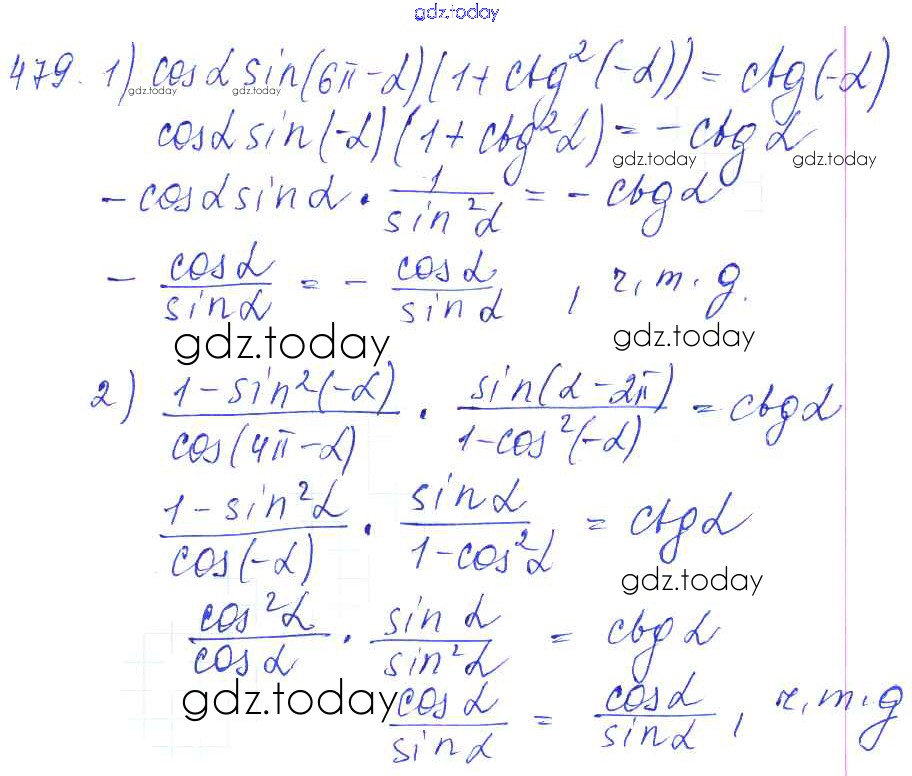 gdz.today
479. 1) cos α sin(6π - α)(1 + ctg²(-α)) = ctg(-α)
gdz.today gdz.today
cos α sin(-α)(1 + ctg²α) = -ctg α
gdz.today gdz.today
- cos α sin α · 1/sin²α = - ctg α
- cos α/sin α = - cos α/sin α, ч.т.д.
gdz.today gdz.today
2) (1 - sin²(-α))/cos(4π - α) · sin(α - 2π)/(1 - cos²(-α)) = ctg α
(1 - sin²α)/cos(-α) · sin α/(1 - cos²α) = ctg α
gdz.today
cos²α/cos α · sin α/sin²α = ctg α
gdz.today
cos α/sin α = cos α/sin α, ч.т.д